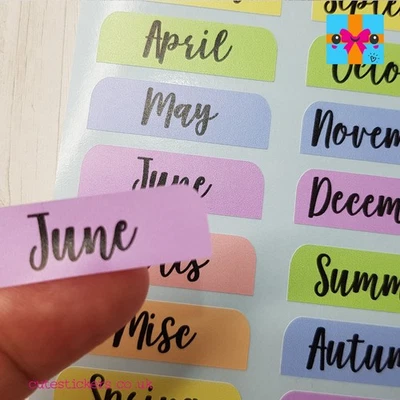 April
May
June
June
Mise
Spring
Septe
Octo
Novem
Decem
Summ
Autum
cutestickers.co.uk